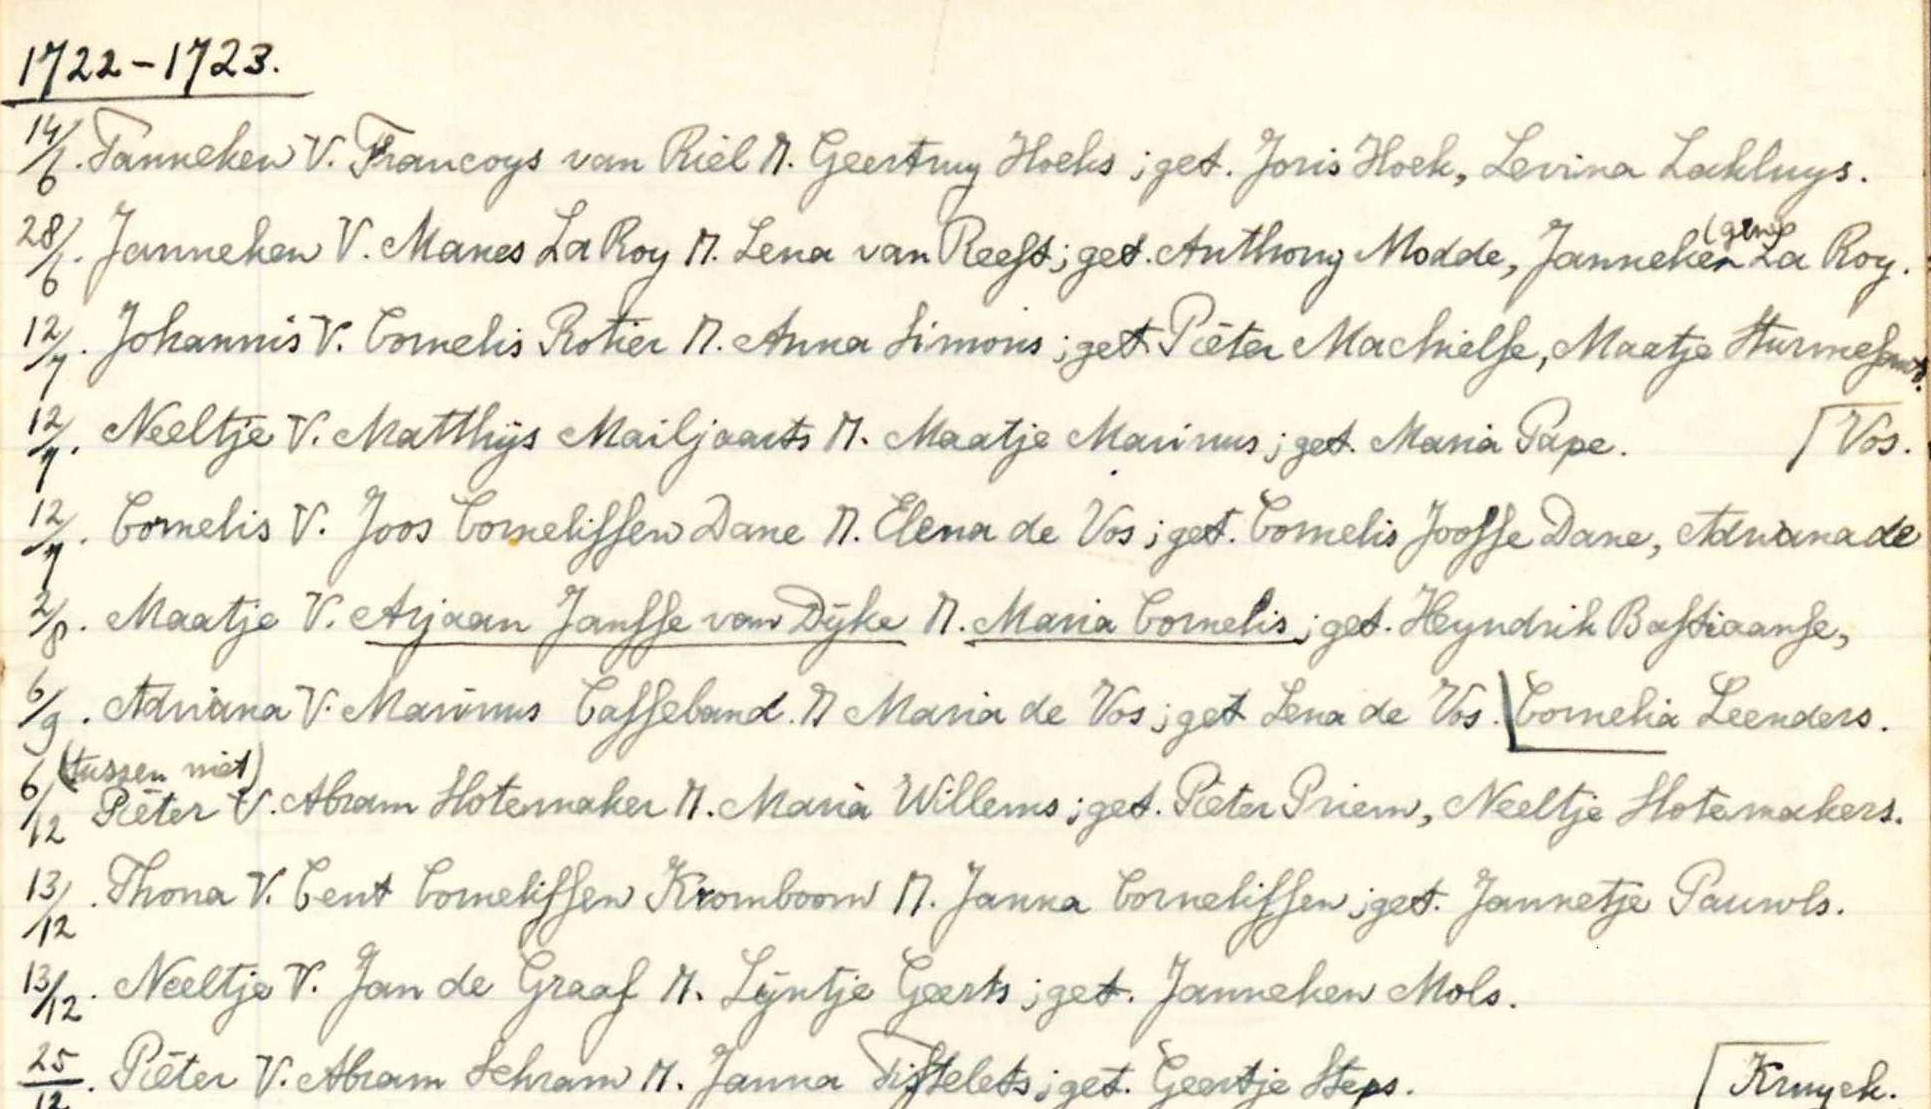 1722-1723.
14/6. Tanneken V. Francoys van Riel M. Geertruy Hoeks ; get. Joris Hoek, Levina Lakluys.
(gen)
28/6. Janneken V. Manes La Roy M. Lena van Reeft ; get. Anthony Modde, Janneken La Roy.
12/7. Johannis V. Cornelis Rotier M. Anna Simons ; get. Piéter Machielsse, Maatje
12/7. Neeltje V. Matthijs Mailjaarts M. Maatje Marinus ; get. Maria Pape. [Vos.
12/7. Cornelis V. Joos Cornelissen Dane M. Elena de Vos ; get. Cornelis Joosse Dane, Adriana de
2/8. Maatje V. Arjaan Jansse van Dijke M. Maria Cornelis ; get. Heyndrik Bastiaanse,
6/9. Adriana V. Marinus Casseband. M Maria de Vos ; get Lena de Vos. [Cornelia Leenders.
(tussen niet)
6/12 Piéter V. Abram Slotemaker M. Maria Willems ; get. Piéter Priem, Neeltje Slotemakers.
13/12. Thona V. Cent Cornelissen Kromboom M. Janna Cornelissen ; get. Jannetje Pauwls.
13/12. Neeltje V. Jan de Graaf M. Lijntje Geerts ; get. Janneken Mols.
25/12. Piéter V. Abram Schram M. Janna Tistelets ; get. Geertje Steps. [Kruyck.